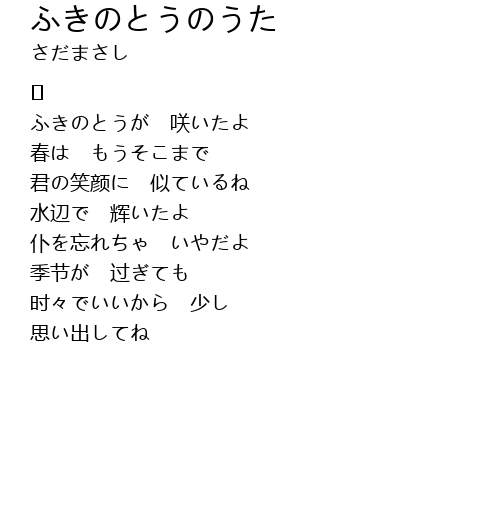 ふきのとうのうた
さだまさし
ふきのとうが　咲いたよ
春は　もうそこまで
君の笑颜に　似ているね
水辺で　辉いたよ
仆を忘れちゃ　いやだよ
季节が　过ぎても
时々でいいから　少し
思い出してね